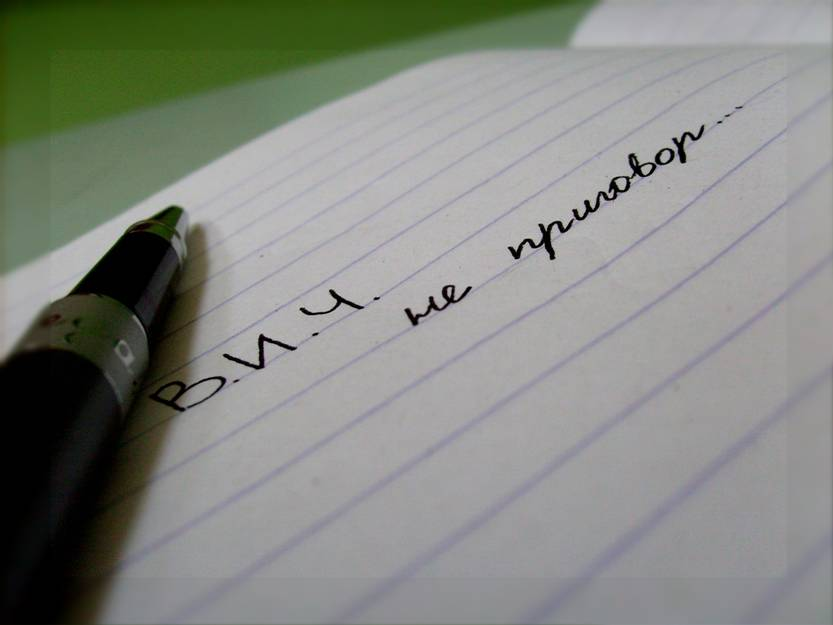 В.И.Ч.
не приговор...